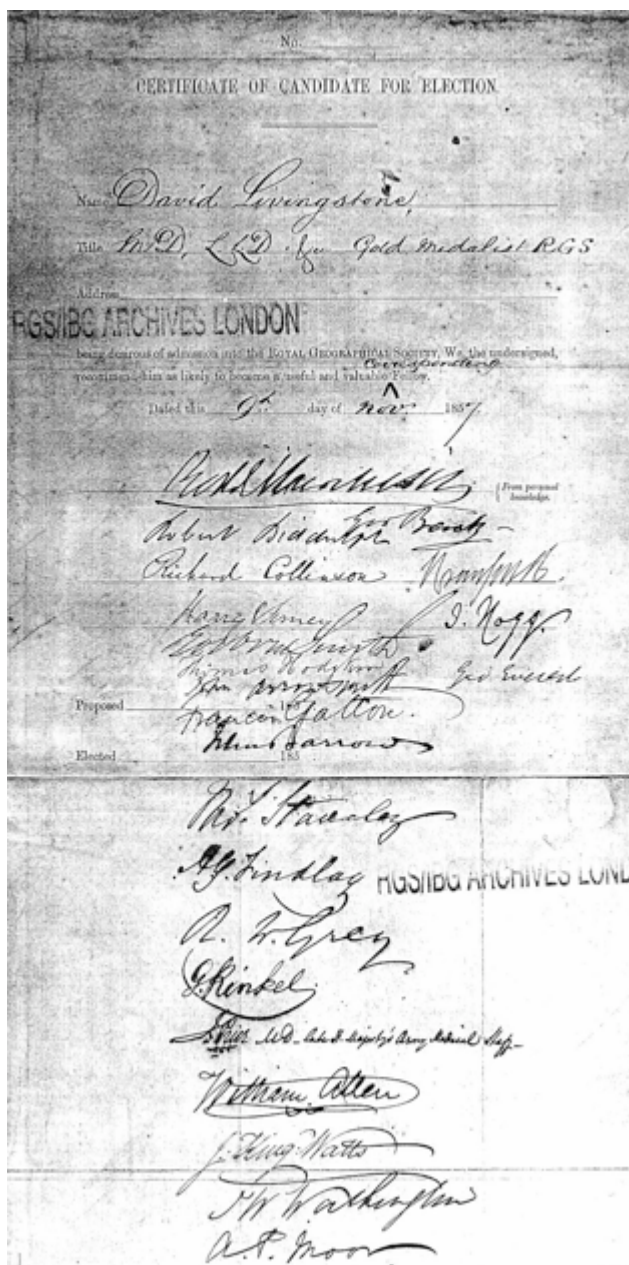 No.
CERTIFICATE OF CANDIDATE FOR ELECTION.
Name David Livingstone,
Title M.D, LLD &c Gold Medalist RGS
Address
RGS/IBG ARCHIVES LONDON
being desirous of admission into the ROYAL GEOGRAPHICAL SOCIETY, We, the undersigned,
corresponding
recommend him as likely to become a useful and valuable Fellow.
Dated this 9th day of Nov. 1857
From personal
knowledge.
Robert Biddulph
Richard Collinson
Harry Verney J. Hogg.
Thomas Hodgkin
John Arrowsmith Geo Everest
Proposed 185
Francis Galton.
John Barrow
Elected 185
Staveley
A G. Findlay RGS/IBG ARCHIVES LOND
R. W. Grey
G. Kinkel
MD. late H. Majesty's Army Medical Staff
William Allen
J. King Watts
J W Washington
A. P. Moor